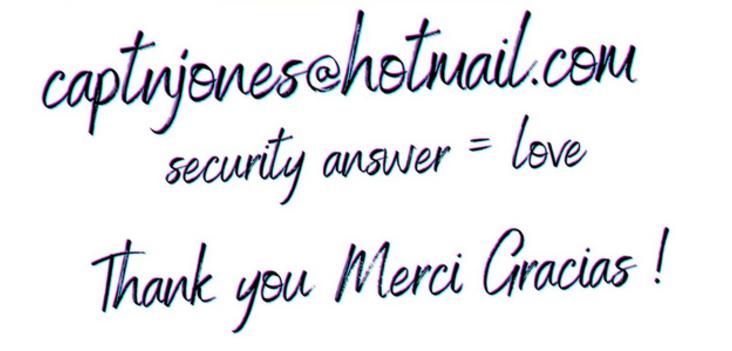 captnjones@hotmail.com
security answer = love
Thank you Merci Gracias !